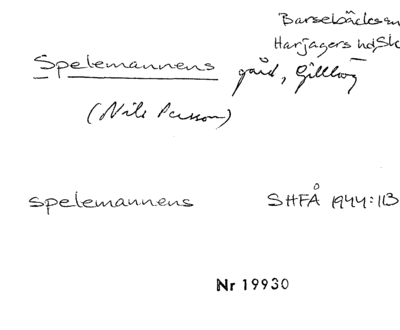 Barsebäcks sn
Harjagers hd, Sk
Spelemannens gård, Gillhög
(Nils Persson)
spelemannens SHFÅ 1944:113
Nr 19930